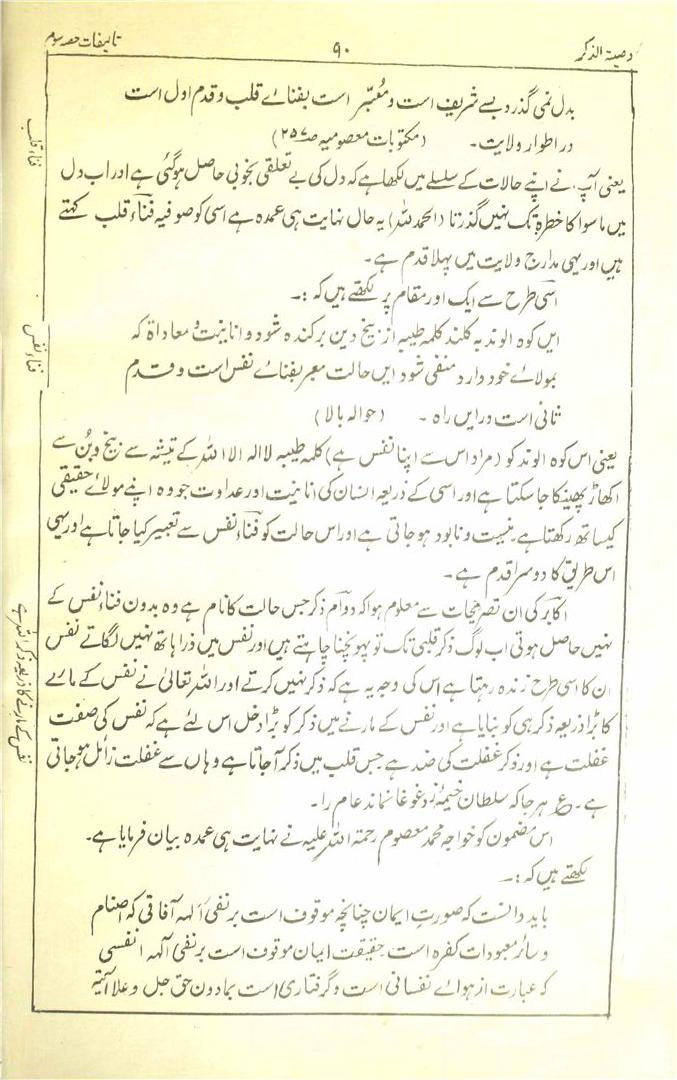 وصیۃ الذکر
۹۰
تالیفات حصہ سوم
بدل نمی گذرد بسے شریف است و معبّر است بفنائے قلب و قدم اول است
در اطوار ولایت۔ (مکتوبات معصومیہ ص۲۵۷)
فناء قلب
یعنی آپ نے اپنے حالات کے سلسلے میں لکھا ہے کہ دل کی بے تعلقی بخوبی حاصل ہوگئی ہے اور اب دل
میں ماسوا کا خطرہ تک نہیں گذرتا (الحمدللہ) یہ حال نہایت ہی عمدہ ہے اسی کو صوفیہ فناء قلب کہتے
ہیں اور یہی مدارج ولایت میں پہلا قدم ہے۔
اسی طرح سے ایک اور مقام پر لکھتے ہیں کہ:۔
ایں کوہ الوند بہ کلند کلمہ طیبہ از بیخ دین برکندہ شود و انانیت و معاداۃ کہ
فناء نفس
بمولائے خود دارد منفی شود ایں حالت معبر بفنائے نفس است و قدم
ثانی است درایں راہ ۔ (حوالہ بالا)
یعنی اس کوہ الوند کو (مراد اس سے اپنا نفس ہے) کلمہ طیبہ لاالہ الااللہ کے تیشہ سے بیخ و بُن سے
اکھاڑ پھینکا جاسکتا ہے اور اسی کے ذریعہ انسان کی انانیت اور عداوت جو وہ اپنے مولائے حقیقی
کیساتھ رکھتا ہے نیست و نابود ہوجاتی ہے اور اس حالت کو فناء نفس سے تعبیر کیا جاتا ہے اور یہی
اس طریق کا دوسرا قدم ہے۔
اکابر کی ان تصریحات سے معلوم ہوا کہ دوام ذکر جس حالت کا نام ہے وہ بدون فناء نفس کے
نہیں حاصل ہوتی اب لوگ ذکر قلبی تک تو پہونچنا چاہتے ہیں اور نفس میں ذرا ہاتھ نہیں لگاتے نفس
ان کا اسی طرح زندہ رہتا ہے اس کی وجہ یہ ہے کہ ذکر نہیں کرتے اور اللہ تعالیٰ نے نفس کے مارنے
نفس کے مارنے کا ذریعہ ذکر اللہ ہے
کا بڑا ذریعہ ذکر ہی کو بنایا ہے اور نفس کے مارنے میں ذکر کو بڑا دخل اس لئے ہے کہ نفس کی صفت
غفلت ہے اور ذکر غفلت کی ضد ہے جس قلب میں ذکر آجاتا ہے وہاں سے غفلت زائل ہوجاتی
ہے۔ ع ہر جا کہ سلطان خیمہ زد غوغا نماند عام را۔
اس مضمون کو خواجہ محمد معصوم رحمۃ اللہ علیہ نے نہایت ہی عمدہ بیان فرمایا ہے۔
لکھتے ہیں کہ:۔
باید دانست کہ صورت ایمان چنانچہ موقوف است بر نفی آلہہ آفاقی کہ اصنام
و سائر معبودات کفرہ است حقیقت ایمان موقوف است بر نفی آلہہ انفسی
کہ عبارت از ہوائے نفسانی است و گرفتاری است بمادون حق جل و علا آیتہ